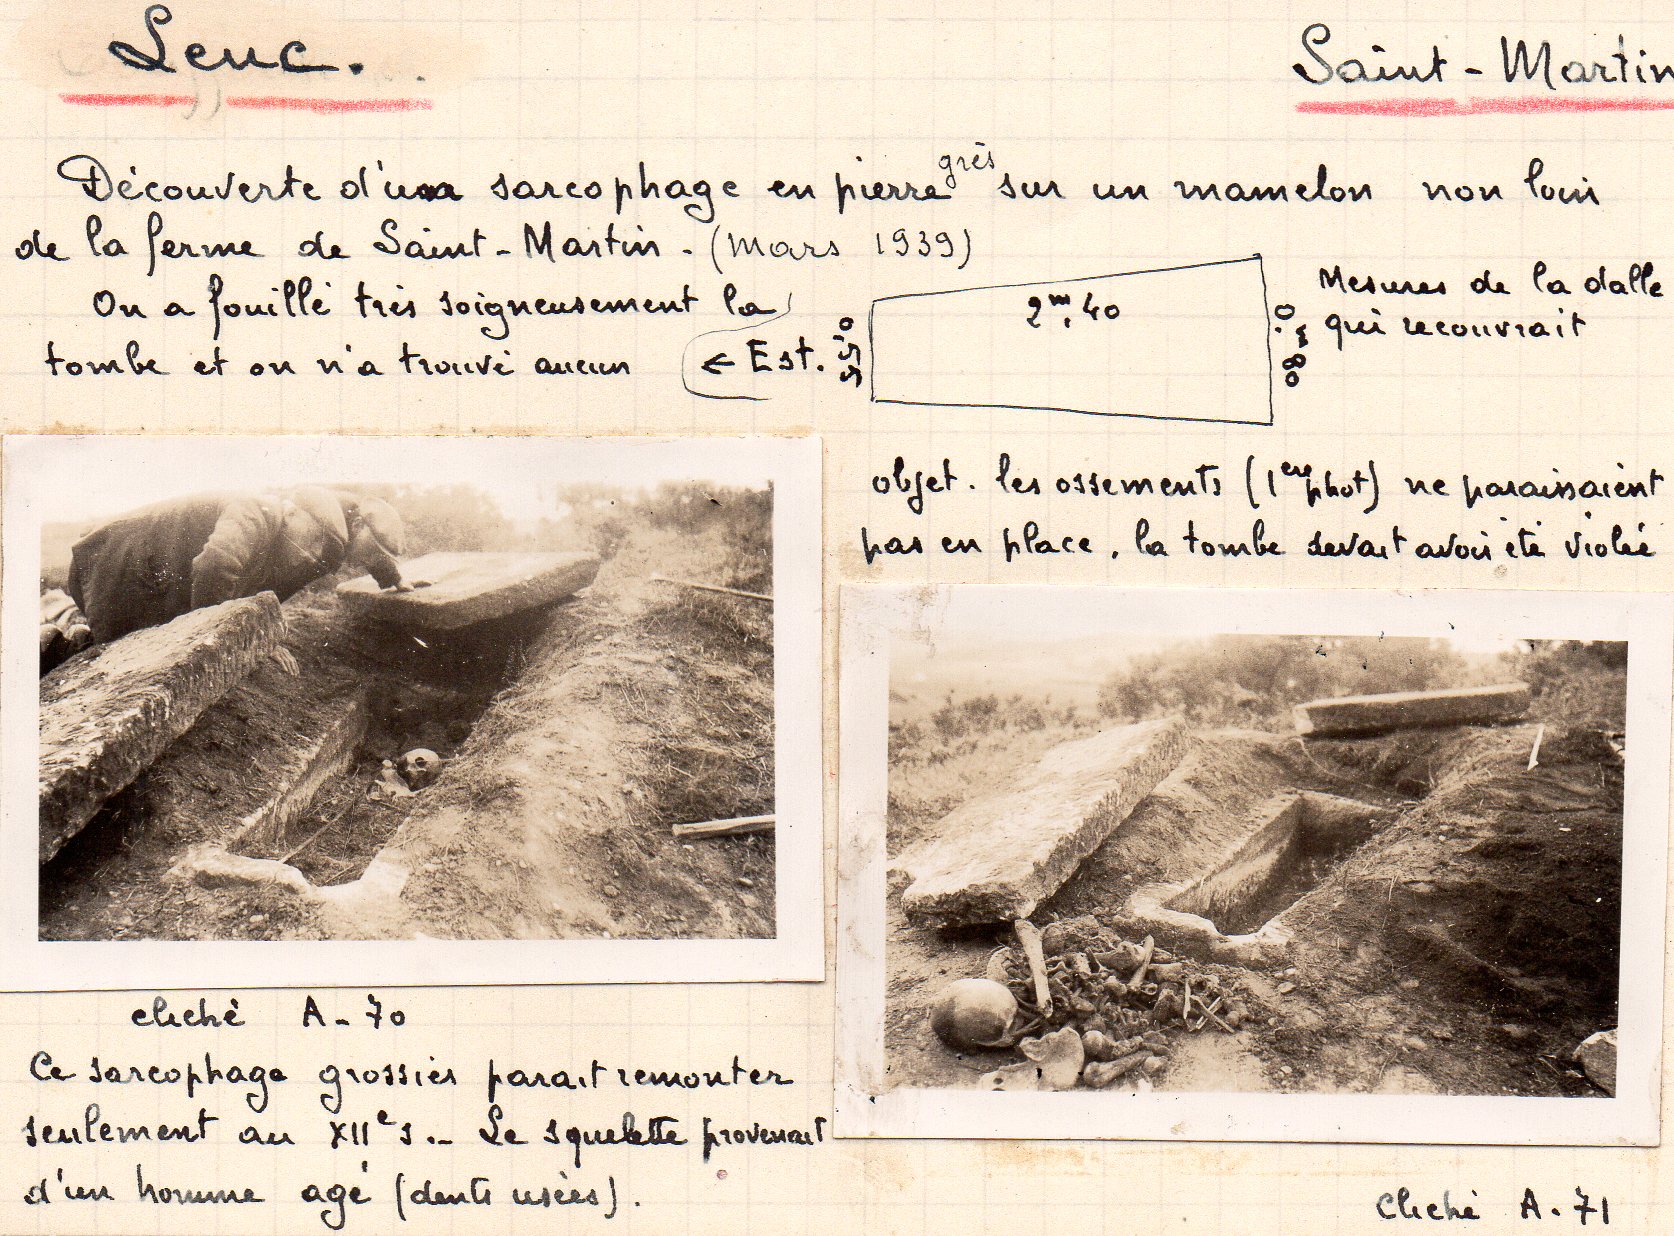 Leuc.
Saint-Martin
Découverte d'un sarcophage en pierre grès sur un mamelon non loin
de la ferme de Saint-Martin. (Mars 1939)
On a fouillé très soigneusement la
tombe et on n'a trouvé aucun
← Est.
0,55
2m,40
0m80
Mesures de la dalle
qui recouvrait
objet. les ossements (1ère phot) ne paraissaient
pas en place, la tombe devait avoir été violée
cliché A-70
Ce sarcophage grossier parait remonter
seulement au XIIe s.- Le squelette provenait
d'un homme agé (dents usées).
Cliché A.71